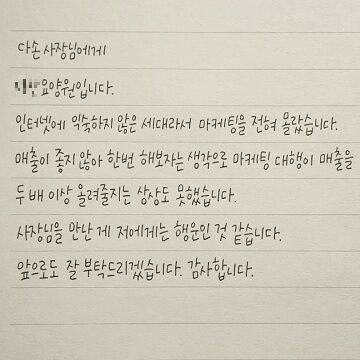 다손 사장님에게
요양원입니다.
인터넷에 익숙하지 않은 세대라서 마케팅을 전혀 몰랐습니다.
매출이 좋지 않아 한번 해보자는 생각으로 마케팅 대행이 매출을
두 배 이상 올려줄지는 상상도 못했습니다.
사장님을 만난 게 저에게는 행운인 것 같습니다.
앞으로도 잘 부탁드리겠습니다. 감사합니다.